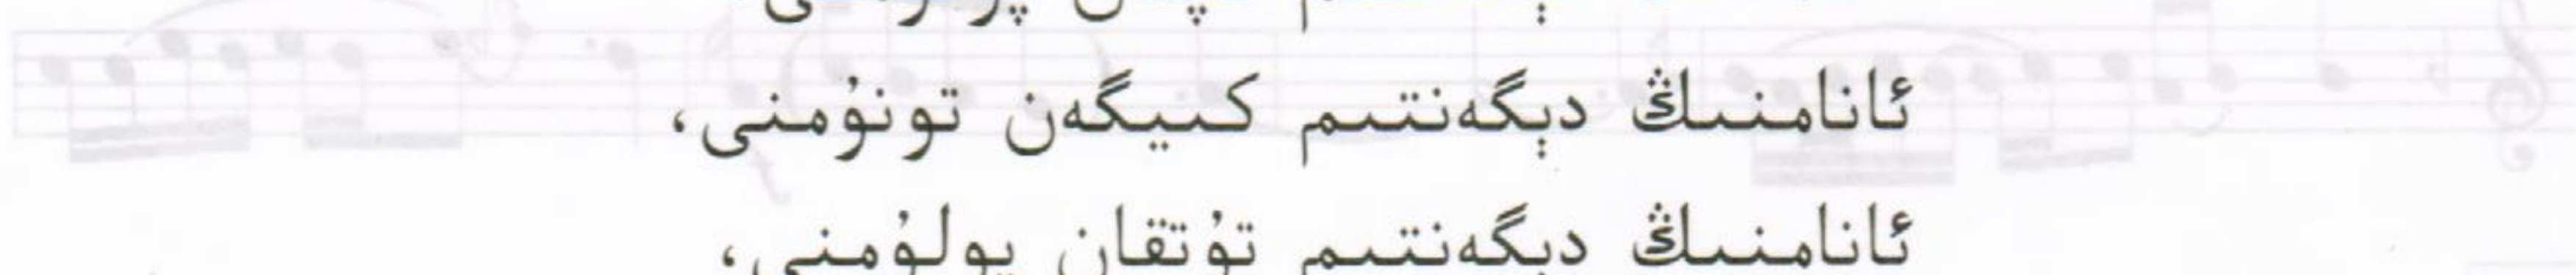 ئانامنىڭ دېگەنتىم كىيگەن تونۇمنى،
ئانامنىڭ دېگەنتىم تۇتقان يولۇمنى،